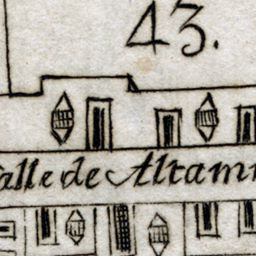 43.
alle de Altam